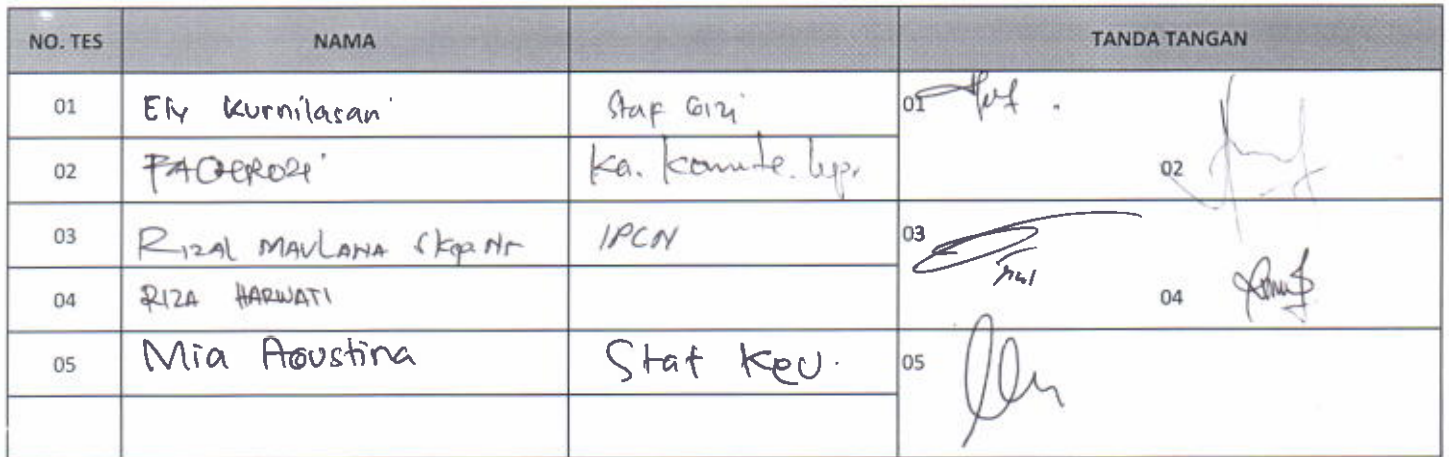 NO. TES NAMA TANDA TANGAN
01 Ely Kurnilasan Staf Gizi 01
02 Ka. Komite. 02
03 RIZAL MAULANA IPCN 03
04 RIZA HARWATI 04
05 Mia Agustina Staf Keu. 05